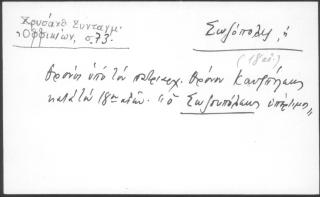 Χρυσάνθ. Συνταγμ.
Ὀφφικίων, σ.73.
Σωζόπολις, ἡ
(18 αἰ.)
Θρόνος ὑπὸ τὸν πατριαρχ. θρόνον Κωνσ/πόλεως
κατὰ τὸν 18ον αἰῶνα. "ὁ Σωζουπόλεως ὑπέρτιμος"